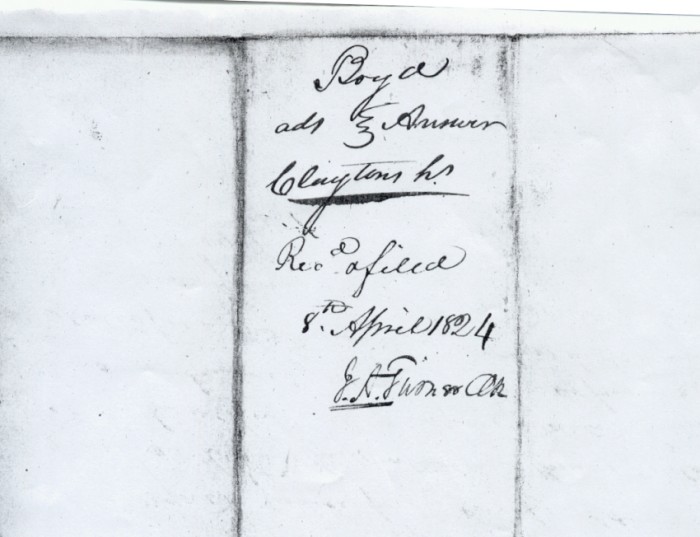 Boyd
ads } Answer
Claytons hs
Rec.d & filed
8th April 1824
J. A. Turner Clk